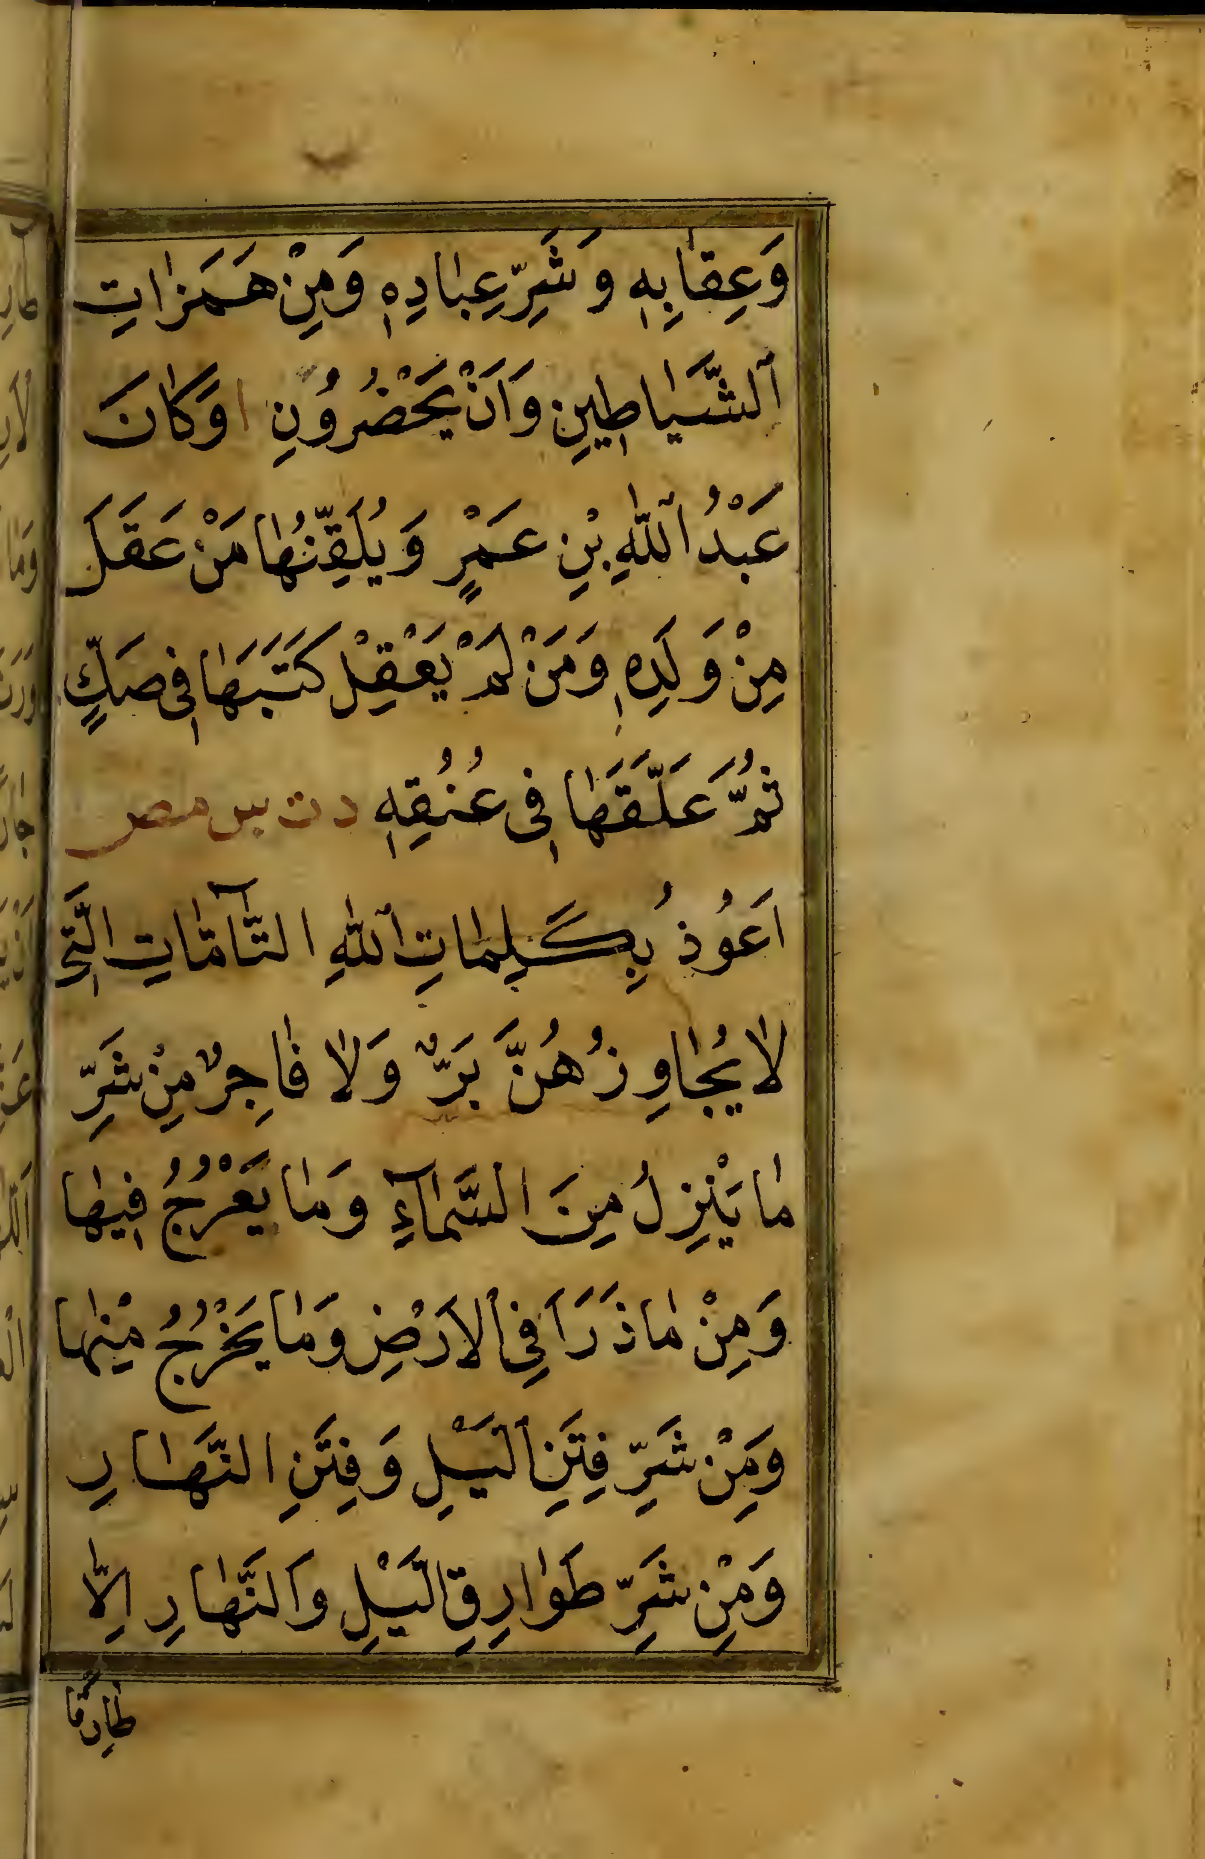 وَعِقَابِهٖ وَشَرِّ عِبَادِهٖ وَمِنْ هَمَزَاتِ
الشَّيَاطِينِ وَاَنْ يَحْضُرُونِ وَكَانَ
عَبْدُ اللّٰهِ بْنِ عَمْرٍ وَيُلَقِّنُهَا مَنْ عَقَلَ
مِنْ وَلَدِهٖ وَمَنْ لَمْ يَعْقِلْ كَتَبَهَا فِى صَكٍّ
ثُمَّ عَلَّقَهَا فِى عُنُقِهٖ د ت س مص
اَعُوذُ بِكَلِمَاتِ اللّٰهِ التَّآمَّاتِ الَّتِى
لَا يُجَاوِزُهُنَّ بَرٌّ وَلَا فَاجِرٌ مِنْ شَرِّ
مَا يَنْزِلُ مِنَ السَّمَآءِ وَمَا يَعْرُجُ فِيهَا
وَمِنْ مَا ذَرَاَ فِى الْاَرْضِ وَمَا يَخْرُجُ مِنْهَا
وَمِنْ شَرِّ فِتَنِ الَّيْلِ وَفِتَنِ النَّهَارِ
وَمِنْ شَرِّ طَوَارِقِ الَّيْلِ وَالنَّهَارِ اِلَّا
طَارِقًا